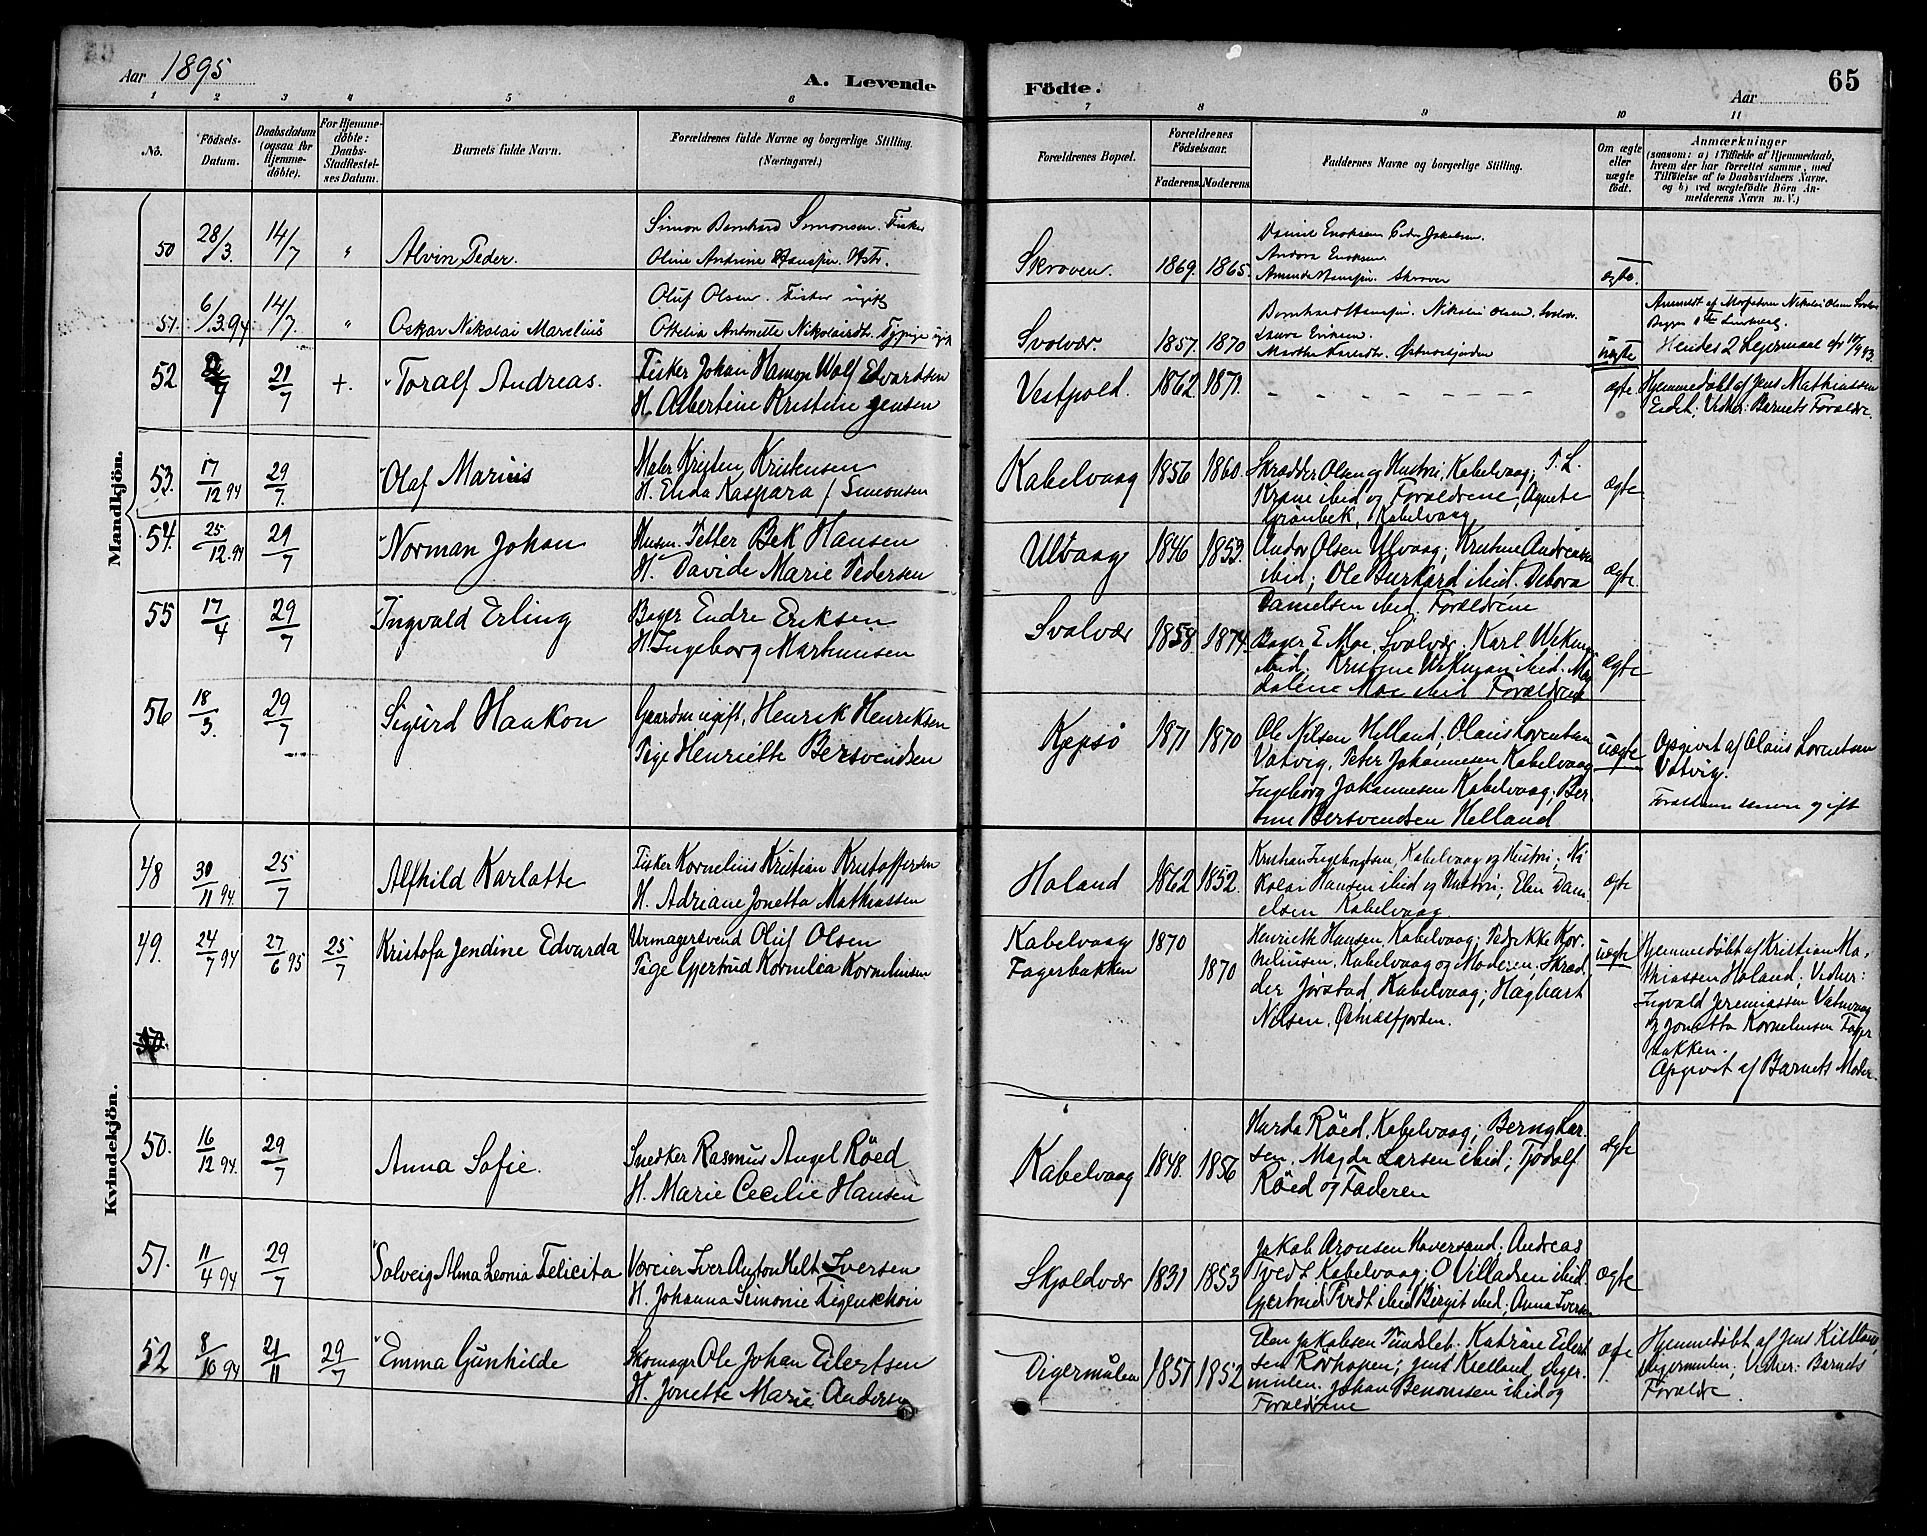 Aar 1895
A. Levende
Födte.
Aar
65
1 2 3 4 5 6 7 8 9 10 11
No.
Födsels-
Datum.
Daabsdatum
(ogsaa for
Hjemme-
döbte).
For Hjemme-
döbte:
Daabs-
Stadfæstel-
ses Datum.
Barnets fulde Navn.
Forældrenes fulde Navne og borgerlige Stilling.
(Næringsvei.)
Forældrenes Bopæl.
Forældrenes
Födselsaar.
Faderens. Moderens.
Faddernes Navne og borgerlige Stilling.
Om ægte
eller
uægte
födt.
Anmærkninger
(saasom: a) i Tilfælde af Hjemmedaab,
hvem der har forrettet samme, med
Tilföielse af to Daabsvidners Navne.
og b) ved uægtefödte Börn An-
melderens Navn m. V.)
Mandkjön.
50 28/3. 14/7 " Alvin Peder.
Simon Bernhard Simonsen. Fisker
Oline Andrine Hansen. Hstr.
Skroven. 1869. 1865.
Daniel Enoksen Peder Jakobsen.
Andora Enoksen.
Amanda Hansen. Skroven
ægte.
51. 6/3.94 14/7. " Oskar Nikolai Marelius
Oluf Olsen. Fisker ugift
Ottelia Antonette Nikolaisdt. Tjpige ugift
Svolvær. 1857. 1870
Bernhard Hansen. Nikolai Olsen. Svolv.
Laura Eriksen.
Martha Karlsdt. Østnesfjorden
uægte
Anmeldt af Morfaderen Nikolai Olsen Svolvær
Hendes 2 Lejermaal
52. /7 21/7 +. Toralf Andreas.
Fisker Johan Hamon Wolf Edvardsen
H. Albertine Kristine Jensen
Vestpold. 1862 1871.
- - - - - - - -
ægte
Hjemmedøbt af Jens Mathiassen
Eidet; Vidner: Barnets Forældre.
53. 17/12 94 29/7. Olaf Marius
Maler Kristen Kristensen
H. Elida Kaspara f Simonsen
Kabelvaag 1856 1860.
Skrædder Olsen og Hustru, Kabelvaag; T. L.
Krane ibid og Forældrene; Agnete
Grönbek, Kabelvaag
ægte
54. 25/12.94 29/7 Norman Johan
Husm. Petter Bek Hansen
H. Davide Marie Pedersen
Ulvaag 1846 1853.
Andor Olsen Ulvaag; Kristine Andreassen
ibid; Ole Burkard ibid. Debora
Danielsen ibid. Forældrene
ægte.
55 17/4 29/7 Ingvald Erling
Bager Endre Eriksen
H. Ingeborg Marthinsen
Svolvær 1858 1874.
Bager E Moe, Svolvær; Karl Wikman
ibid. Kristine Wikman ibid. Mag
dalene Moe ibid Forældrene
ægte
56 18/3. 29/7 Sigurd Haakon
Gaardm ugift, Henrik Henriksen
Pige Henriette Bersvendsen
Kjepsö 1871 1870
Ole Nilsen Helland; Olaus Lorentsen
Vatvig, Peter Johannesen Kabelvaag
Ingeborg Johannesen Kabelvaag; Ber-
tine Bersvendsen Helland
uægte
Opgivet af Olaus Lorentsen
Vatvig.
Forældrene senere gift
Kvindekjön.
48 30/11 94. 25/7 Alfhild Karlotte
Fisker Kornelius Kristian Kristoffersen
H. Adriane Jonetta Mathiassen
Holand 1862 1852.
Kristian Ingebrigtsen, Kabelvaag og Hustru; Ni
kolai Hansen ibid og Hustru; Elen Dani
elsen Kabelvaag.
ægte
49. 24/7 94 27/6 95 25/7 Kristofa Jendine Edvarda
Urmagersvend Oluf Olsen
Pige Gjertrud Kornelia Korneliussen
Kabelvaag
Fagerbakken
1870 1870
Henriette Hansen, Kabelvaag; Pedrikke Kor-
neliusen, Kabelvaag og Moderen; Skræd
der Jörstad, Kabelvaag; Hagbart
Nilsen. Østnesfjorden.
uægte
Hjemmedøbt af Kristian Ma-
thiassen Holand; Vidner:
Ingvald Jeremiassen Vatnvaag
og Jonetta Korneliusen Fager
bakken.
Opgivet af Barnets Moder.
50. 16/12 94. 29/7 Anna Sofie.
Snedker Rasmus Angel Röed
H. Marie Cecilie Hansen
Kabelvaag 1848. 1856
Hurda Röed, Kabelvaag; Bernh Lar-
sen. Magda Larsen ibid; Tjodolf
Röed og Faderen
ægte
51. 11/4 94 29/7 Solveig Alma Leonia Felicita
Væreier Iver Anton Helt Iversen
H. Johanna Simonie Figenschou
Skjoldvær 1831 1853
Jakob Aronsen Haversand; Andreas
Tvedt Kabelvaag; O Villadsen ibid.
Gjertrud Tvedt ibid Birgit ibid; Anna Iversen
ægte
52 8/10 94 21/11 29/7 Emma Gunhilde
Skomager Ole Johan Eilertsen
H. Jonette Marie Andersen
Digermulen 1857 1852
Elen Jakobsen Sundslet. Katrine Eilert
sen Rörhopen; Jens Kielland, Diger
mulen. Johan Benonisen ibid og
Forældrene
ægte
Hjemmedøbt af Jens Kielland,
Digermulen; Vidner: Barnets
Forældre.